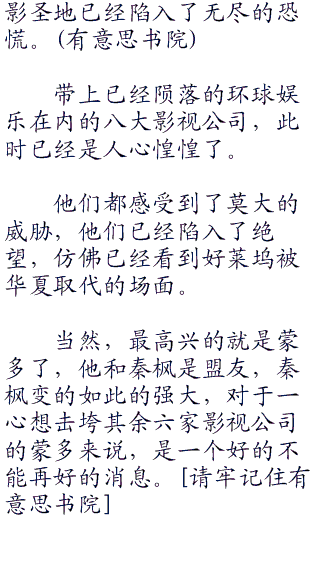 影圣地已经陷入了无尽的恐
慌。(有意思书院)
带上已经陨落的环球娱
乐在内的八大影视公司，此
时已经是人心惶惶了。
他们都感受到了莫大的
威胁，他们已经陷入了绝
望，仿佛已经看到好莱坞被
华夏取代的场面。
当然，最高兴的就是蒙
多了，他和秦枫是盟友，秦
枫变的如此的强大，对于一
心想击垮其余六家影视公司
的蒙多来说，是一个好的不
能再好的消息。[请牢记住有
意思书院]